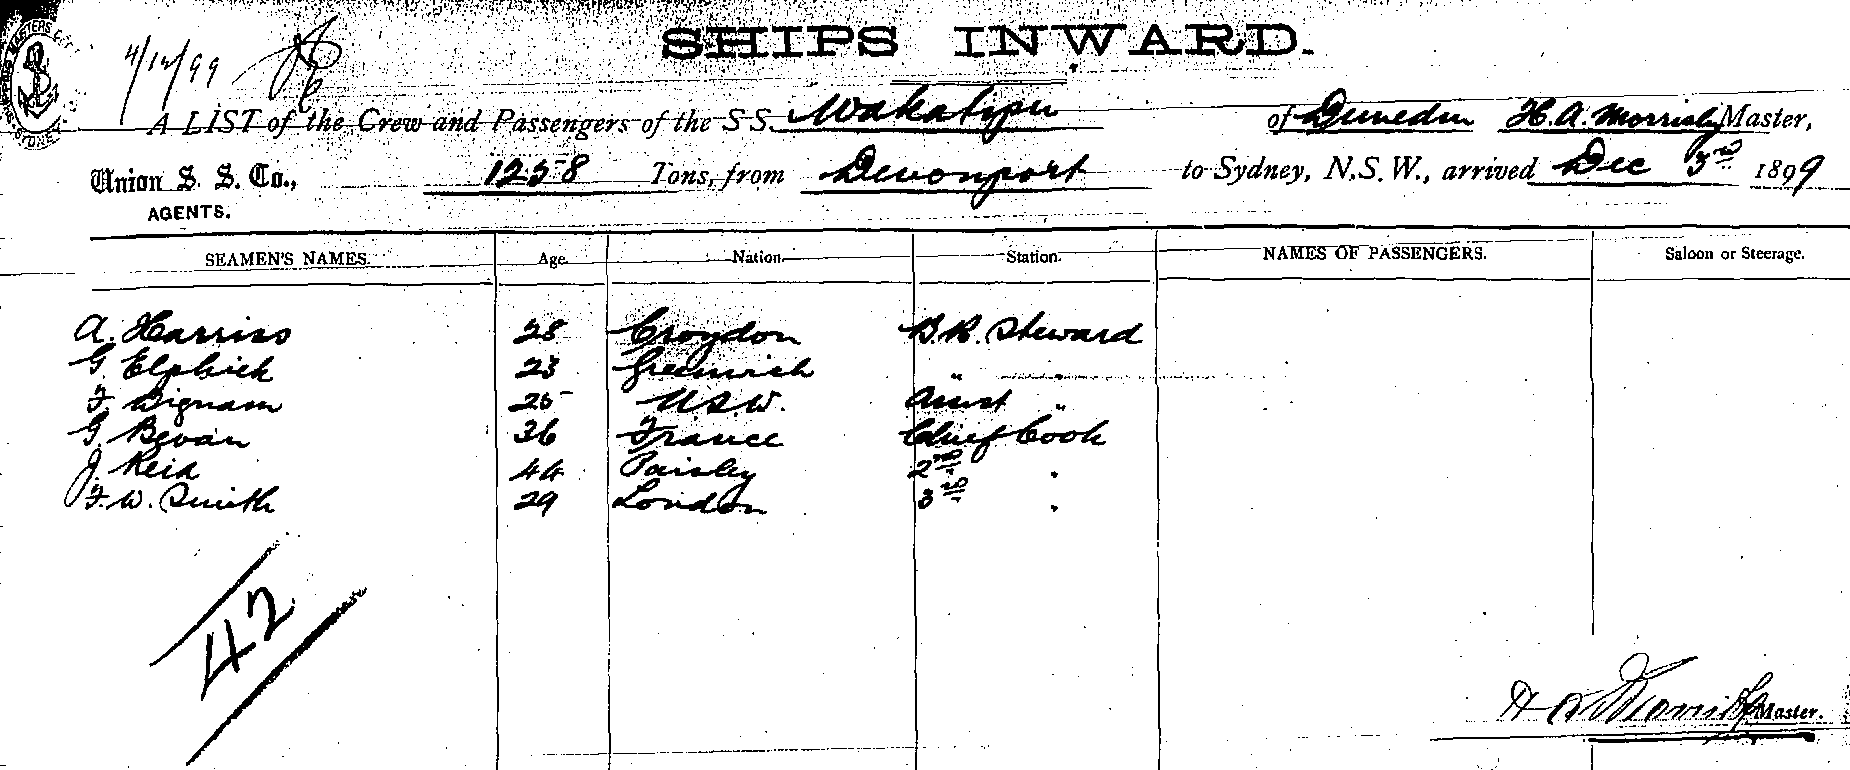 4/12/99
SHIPS INWARD.
A LIST of the Crew and Passengers of the S S. Wakatipu of Dunedin H. A. Morrisby Master,
Union S. S. Co., 1258 Tons, from Devonport to Sydney, N.S.W., arrived Dec 3rd 1899
AGENTS.
SEAMEN'S NAMES. Age. Nation. Station. NAMES OF PASSENGERS. Saloon or Steerage.
A. Harriss 28 Croydon B.R. Steward
G. Elphick 23 Greenwich " "
F. Dignam 25 N.S.W. Assist "
G. Bevan 36 France Chief Cook
J. Reid 44 Paisley 2nd "
F. W. Smith 29 London 3rd "
42
H A Morrisby Master.